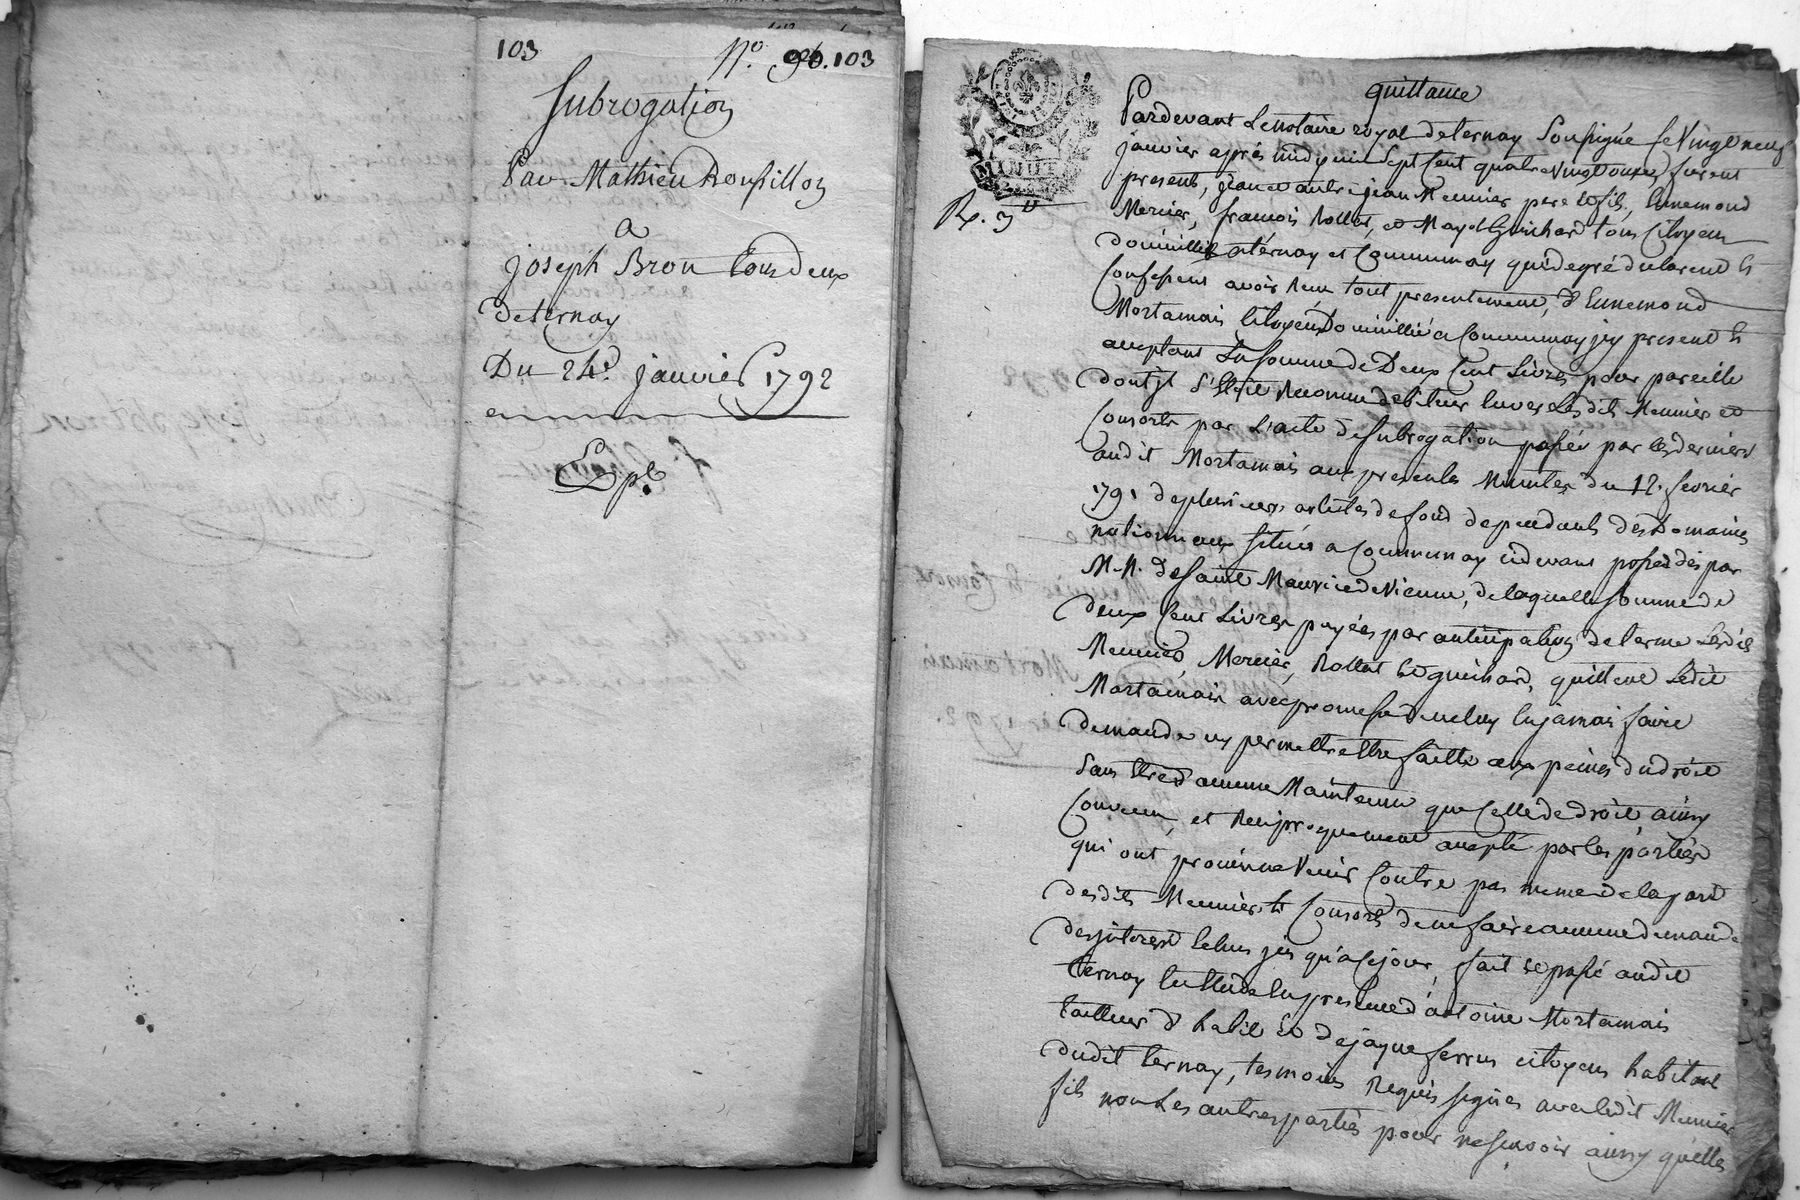 103
N.º 96. 103
Subrogation
Par Mathieu Roussillon
a
joseph Bron tous deux
de ternay
Du 24e. janvier 1792
Exp.
quittance
MINUT
R. 3
Pardevant Le notaire royal de ternay soussigné le vingt neuf
janvier après midy mil sept cent quatre vingt douze, furent
presents, jean et autre jean Meunier pere et fils, Ennemond
Mercier, françois Rollet, et Guichard tous Citoyens
domiciliés a ternay et Communay qui de gré declarent et
Confessent avoir recu tout presentement, d'Ennemond
Mortamais Citoyen Domicillié a Communay icy present et
acceptant La somme de Deux Cent Livres pour pareille
dont il s'etoit Reconnu debiteur envers Lesdits Meunier et
Consorts par L'acte de subrogation passée par ces derniers
audit Mortamais aux presentes Minutes du 12. fevrier
1791 de plusieurs articles de fond dependants des Domaines
nationnaux situés a Communay cidevant possedés par
M.M. de saint Maurice de Vienne, de laquelle somme de
deux Cent Livres payées par anticipation de terme Lesdits
Meunier Mercier, Rollet et guichard, quittent Ledit
Mortamais avec promesse de ne luy en jamais faire
demande ny permettre etre faitte aux peines du droit
sans etre d'aucune Maintenue que Celle de droit, ainsy
Convenu, et Reciproquement accepté par les parties
qui ont promis ne Venir Contre pas meme de la part
desdits Meunier et Consorts de ne faire aucune demande
des interest Echus jusqu'a Ce jour, fait et passé audit
ternay Etude En presence d'antoine Mortamais
tailleur d'habit et de jaques ferrus citoyens habitant
dudit ternay, tesmoins Requis signés avec Ledit Meunier
fils non Les autres parties pour ne sçavoir ainsy qu'elles